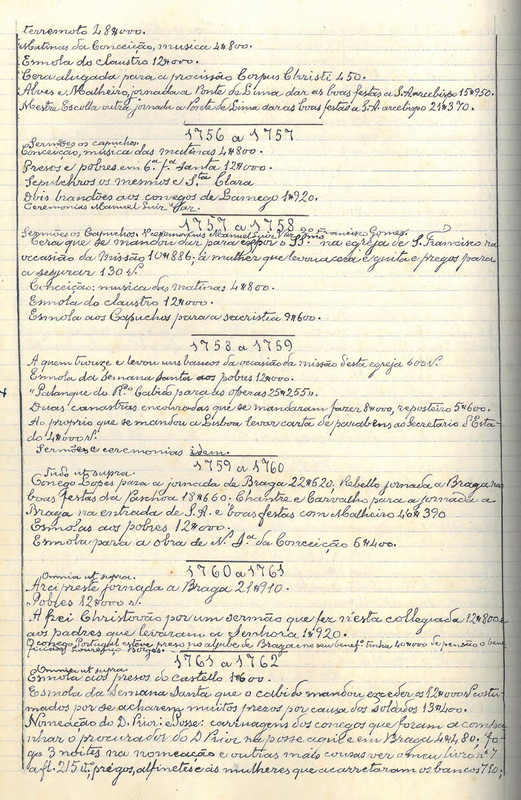 terremoto 28#000.
Matinas da Conceição, musica 4#800.
Esmola do claustro 12#000.
Cera alugada para a procissão Corpus Christi 450.
Alves e Malheiro, jornada a Ponte de Lima dar as boas festas a S. A. arcebispo 15#950.
Mestre Escolla outra jornada a Ponte de Lima dar as boas festas a S. A. arcebispo 21#370.
1756 a 1757
Sermões os capuchos.
Conceição, musica das matinas 4#800.
Presos e pobres em 6.ª f.ª santa 12#000.
Sepulchros os mesmos e S.ta Clara
Dois brandões aos conegos de Lamego 1#920.
Ceremonias Manuel Luiz Vaz.
1757 a 1758
Sermões os Capuchos. Ceremonias Manuel Luiz Vaz Francisco Gomes.
Cera que se mandou dar para expor o SS. na egreja de S. Francisco na
occasião da Missão 10#886, á mulher que levou a cera e guita e pregos para
a segurar 130 r.s
Conceição: musica das matinas 4#800.
Esmola do claustro 12#000.
Esmola aos Capuchos para a sacristia 9#600.
1758 a 1759
A quem trouxe e levou uns bancos da occasião da missão d'esta egreja 600 r.s
Esmola da Semana Santa aos pobres 12#000.
"Palanque do R.do Cabido para as operas 25#255."
Duas canastras encouradas que se mandaram fazer 8#000, reposteiro 5#600.
Ao proprio que se mandou a Lisboa levar carta de parabens ao Secretario d'Esta-
do 4#000 r.s
Sermões e ceremonias idem.
1759 a 1760
Tudo ut supra.
Conego Lopes para a jornada de Braga 22#620. Rebello jornada a Braga nas
boas festas da Paschoa 18#660. Chantre e Carvalho para a jornada a
Braga na entrada de S. A. e boas festas com Malheiro 46#390
Esmolas aos pobres 12#000.
Esmola para a obra de N.ª S.ª da Conceição 6#400.
1760 a 1761
Omnia ut supra.
Arcipreste jornada a Braga 21#910.
Pobres 12#000 r.s
A frei Christovão por um sermão que fez n'esta collegiada 12#800 e
aos padres que levaram a Senhora 1#920.
O conego Portugal esteve preso no aljube de Braga e no seu benef.º tinha 40#000 de pensão o bene-
ficiado Lourenço Borges.
1761 a 1762
Omnia ut supra
Esmola aos presos do castello 1#600.
Esmola da Semana Santa que o cabido mandou exceder os 12#000 r.s costu-
mados por se acharem muitos presos por causa dos soldados 13#400.
Nomeação do D. Prior e posse: carruagens dos conegos que foram acompa-
nhar o procurador do D. Prior na posse aqui e em Braga 4#480, fo-
gos 3 noites na nomeação e outras mais cousas ver o meu livro n.º 7
a fl. 215 v.; prégos, alfinetes e ás mulheres que acarretaram os bancos 710;